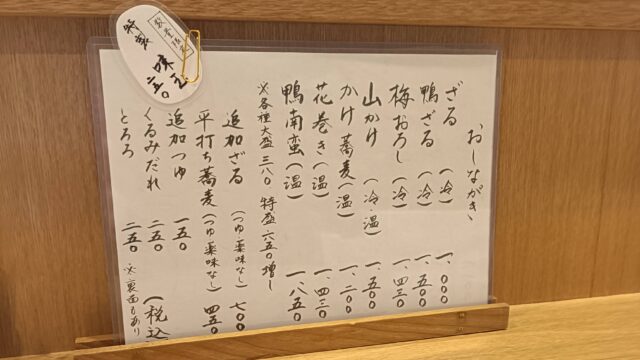 おしながき
ざる (冷) 一、〇〇〇
鴨ざる (冷) 一、五〇〇
梅おろし (冷) 一、四三〇
山かけ (冷温) 一、五〇〇
かけ蕎麦 (温) 一、二〇〇
花巻き (温) 一、四三〇
鴨南蛮 (温) 一、八五〇
※各種大盛 三八〇 特盛 六五〇 増し
追加ざる (つゆ薬味なし) 七〇〇
平打ち蕎麦 (つゆ薬味なし) 四五〇
追加つゆ 一五〇
くるみだれ 二五〇 (税込
とろろ 二五〇 ※裏面もあり
数量限定
特製
味玉